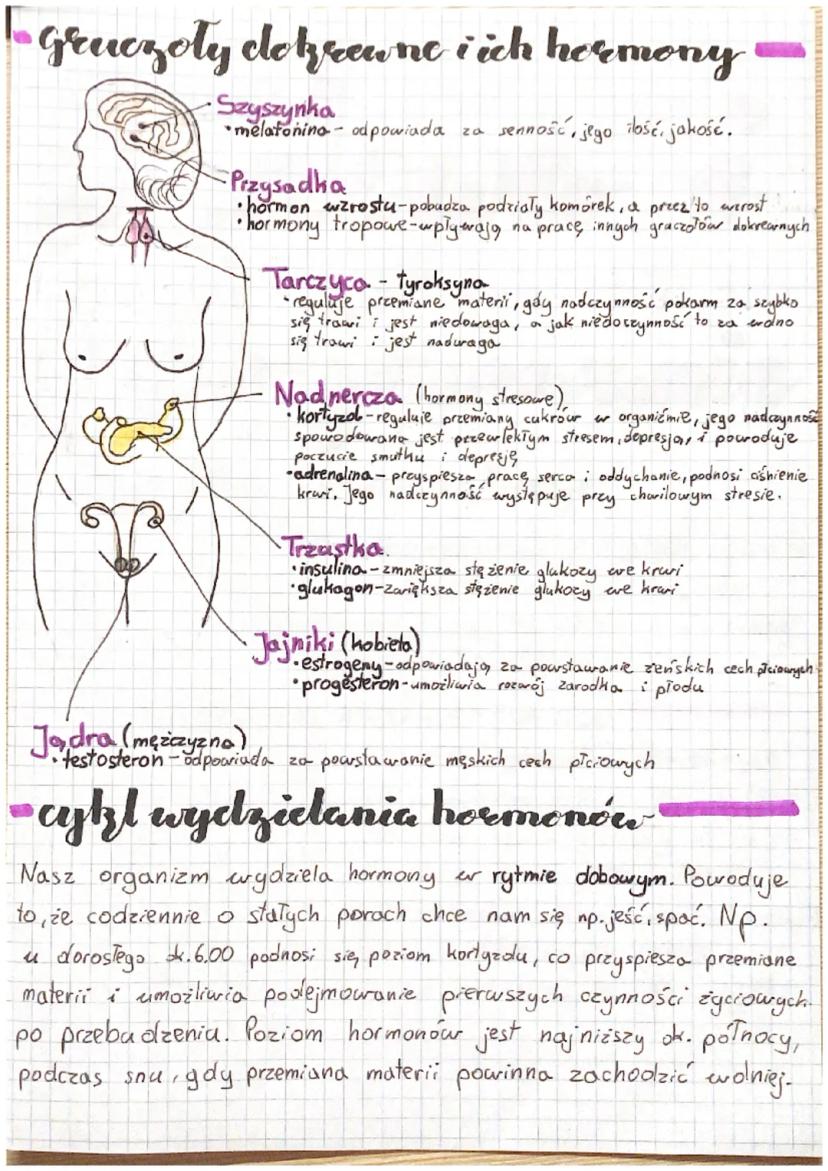 gruczoły dokrewne i ich hormony
Szyszynka
• melatonina – odpowiada za senność, jego ilość, jakość.
Przysadka
• hormon wzrostu – pobudza podziały komórek, a przez to wzrost
• hormony tropowe – wpływają na pracę innych gruczołów dokrewnych
Tarczyca – tyroksyna
• reguluje przemiane materii, gdy nadczynność pokarm za szybko
się trawi i jest niedowaga, a jak niedoczynność to za wolno
się trawi i jest nadwaga
Nadnercza (hormony stresowe)
• kortyzol – reguluje przemiany cukrów w organizmie, jego nadczynność
spowodowana jest przewlekłym stresem, depresją, i powoduje
poczucie smutku i depresję
• adrenalina – przyspiesza pracę serca i oddychanie, podnosi ciśnienie
krwi. Jego nadczynność występuje przy chwilowym stresie.
Trzustka
• insulina – zmniejsza stężenie glukozy we krwi
• glukagon – zwiększa stężenie glukozy we krwi
Jajniki (kobieta)
• estrogeny – odpowiadają za powstawanie żeńskich cech płciowych
• progesteron – umożliwia rozwój zarodka i płodu
Jądra (mężczyzna)
• testosteron – odpowiada za powstawanie męskich cech płciowych
cykl wydzielania hormonów
Nasz organizm wydziela hormony w rytmie dobowym. Powoduje
to, że codziennie o stałych porach chce nam się np. jeść, spać. Np.
u dorosłego ok. 6.00 podnosi się poziom kortyzolu, co przyspiesza przemiane
materii i umożliwia podejmowanie pierwszych czynności życiowych
po przebudzeniu. Poziom hormonów jest najniższy ok. północy,
podczas snu, gdy przemiana materii powinna zachodzić wolniej.